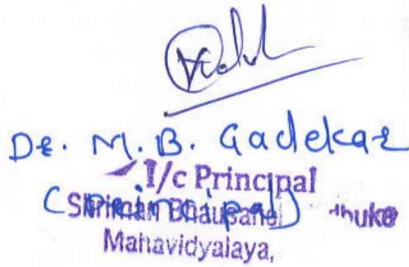 Dr. M. B. Gadekar
I/c Principal
(Principal)
Shriman Bhausaheb
Mahavidyalaya,